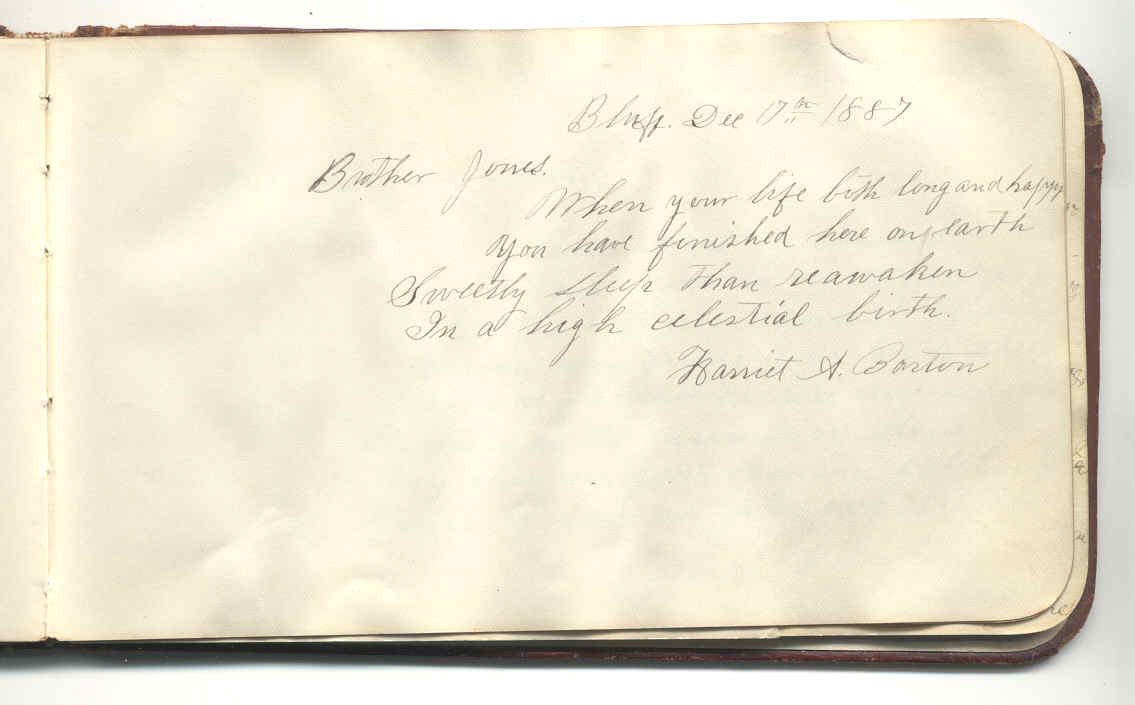 Bluff. Dec 17th 1887
Brother Jones.
When your life both long and happy
You have finished here on earth
Sweetly sleep than reawaken
In a high celestial birth.
Harriet A. Barton